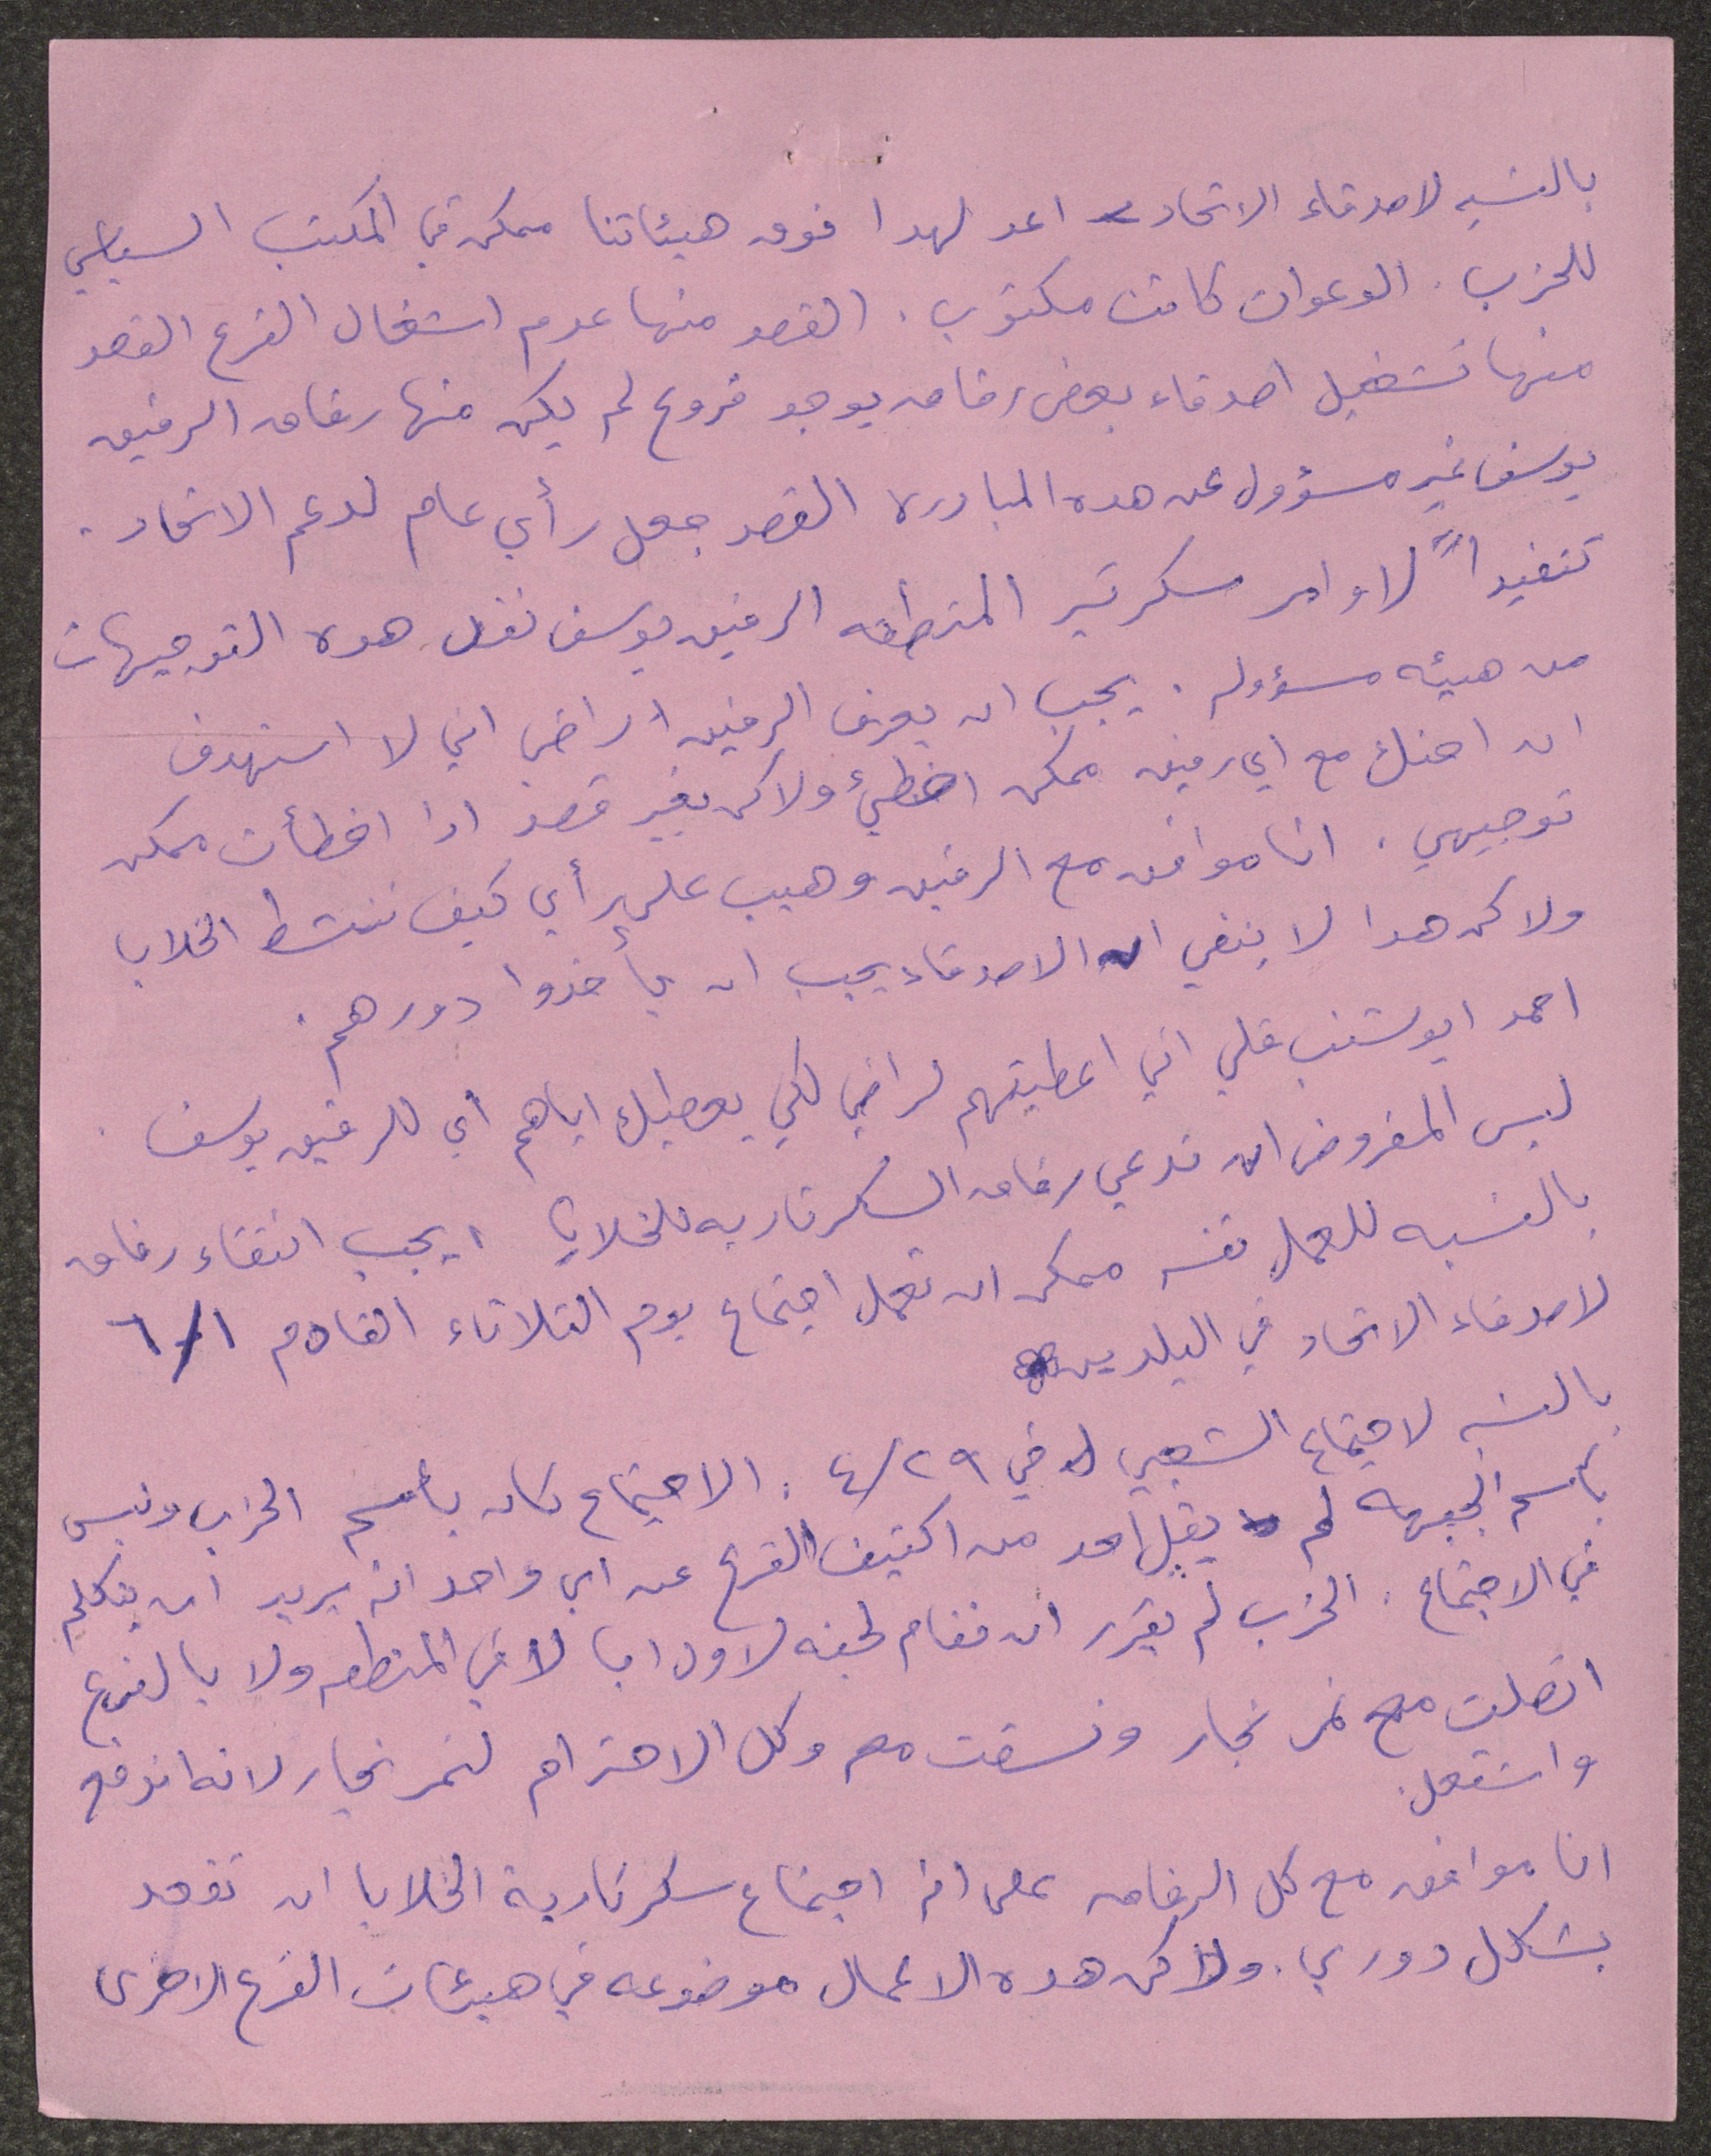 بالنسبه لاصدقاء الاتحاد اعد لهدا فوق هيئاتنا ممكن في المكتب السياسي
للحزب . الدعوات كانت مكتوب . القصد منها عدم اشغال الفرع القصد
منها تشغيل اصدقاء بعض رفاق يوجد فروع لم يكن منها رفاق الرفيق
يوسف غير مسؤول عن هده المبادره القصد جعل رأي عام لدعم الاتحاد .
تنفيداً لاوامر سكرتير المنطقه الرفيق يوسف نقل هده التوجيهات
من هيئه مسؤوله . يجب ان يعرف الرفيق راضي اني لا استهدف
ان احتك مع اي رفيق ممكن اخطئ ولاكن بغير قصد ادا اخطأت ممكن
توجيهي . انا موافق مع الرفيق وهيب على رأي كيف ننشط الخلايا
ولاكن هدا لا ينفي ان الاصدقاء يجب ان يأخدوا دورهم .
احمد ابوشنب قلي اني اعطيتهم لراضي لكي يعطيك اياهم اي للرفيق يوسف .
ليس المفروض ان ندعي رفاق السكرتاريه للخلايا . يجب انتقاء رفاق
بالنسبه للعمل نفسه ممكن ان نعمل اجتماع يوم الثلاثاء القادم ٦/١
لاصدقاء الاتحاد في البلدين
بالنسبه لاجتماع الشعبي في ٤/٢٩ : الاجتماع كان باسم الحزب وليس
باسم الجبهه لم يقبل احد من اكتيف الفرع عن اي واحد انه يريد ان يتكلم
في الاجتماع . الحزب لم يقرر ان تقام لجنه لاول ايا لا في المنطقه ولا بالفرع
اتصلت مع نمر نجار ونسقت معه وكل الاحترام لنمر نجار لانه اندفع
واشتعل .
انا موافق مع كل الرفاق على انه اجتماع سكرتارية الخلايا ان تقعد
بشكل دوري . ولاكن هده الاعمال موضوعه في هيئات الفرع الاخرى